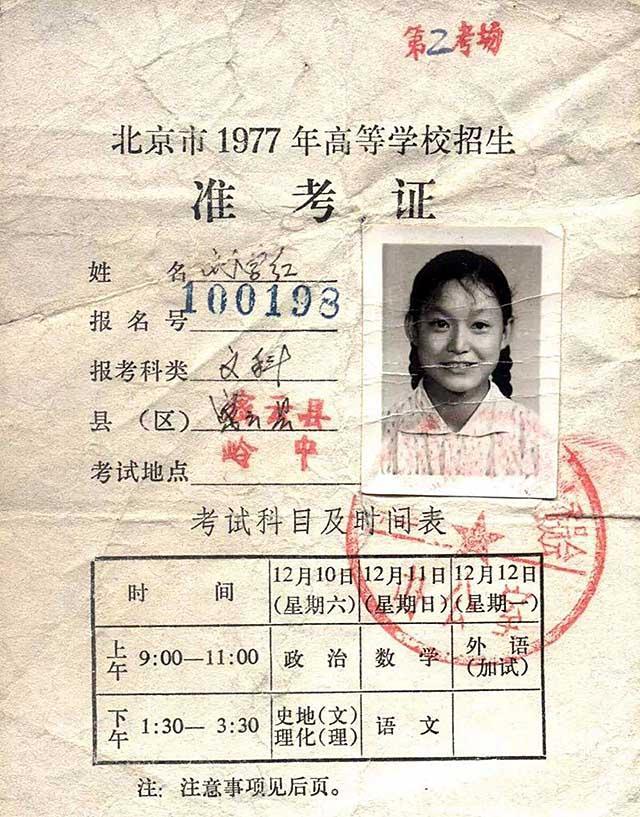 第2考场
北京市1977年高等学校招生
准考证
姓名 刘学红
报名号 100198
报考科类 文科
县(区) 密云县
考试地点 岭中
考试科目及时间表
时间 12月10日(星期六) 12月11日(星期日) 12月12日(星期一)
上午 9:00—11:00 政治 数学 外语(加试)
下午 1:30—3:30 史地(文)理化(理) 语文
注：注意事项见后页。